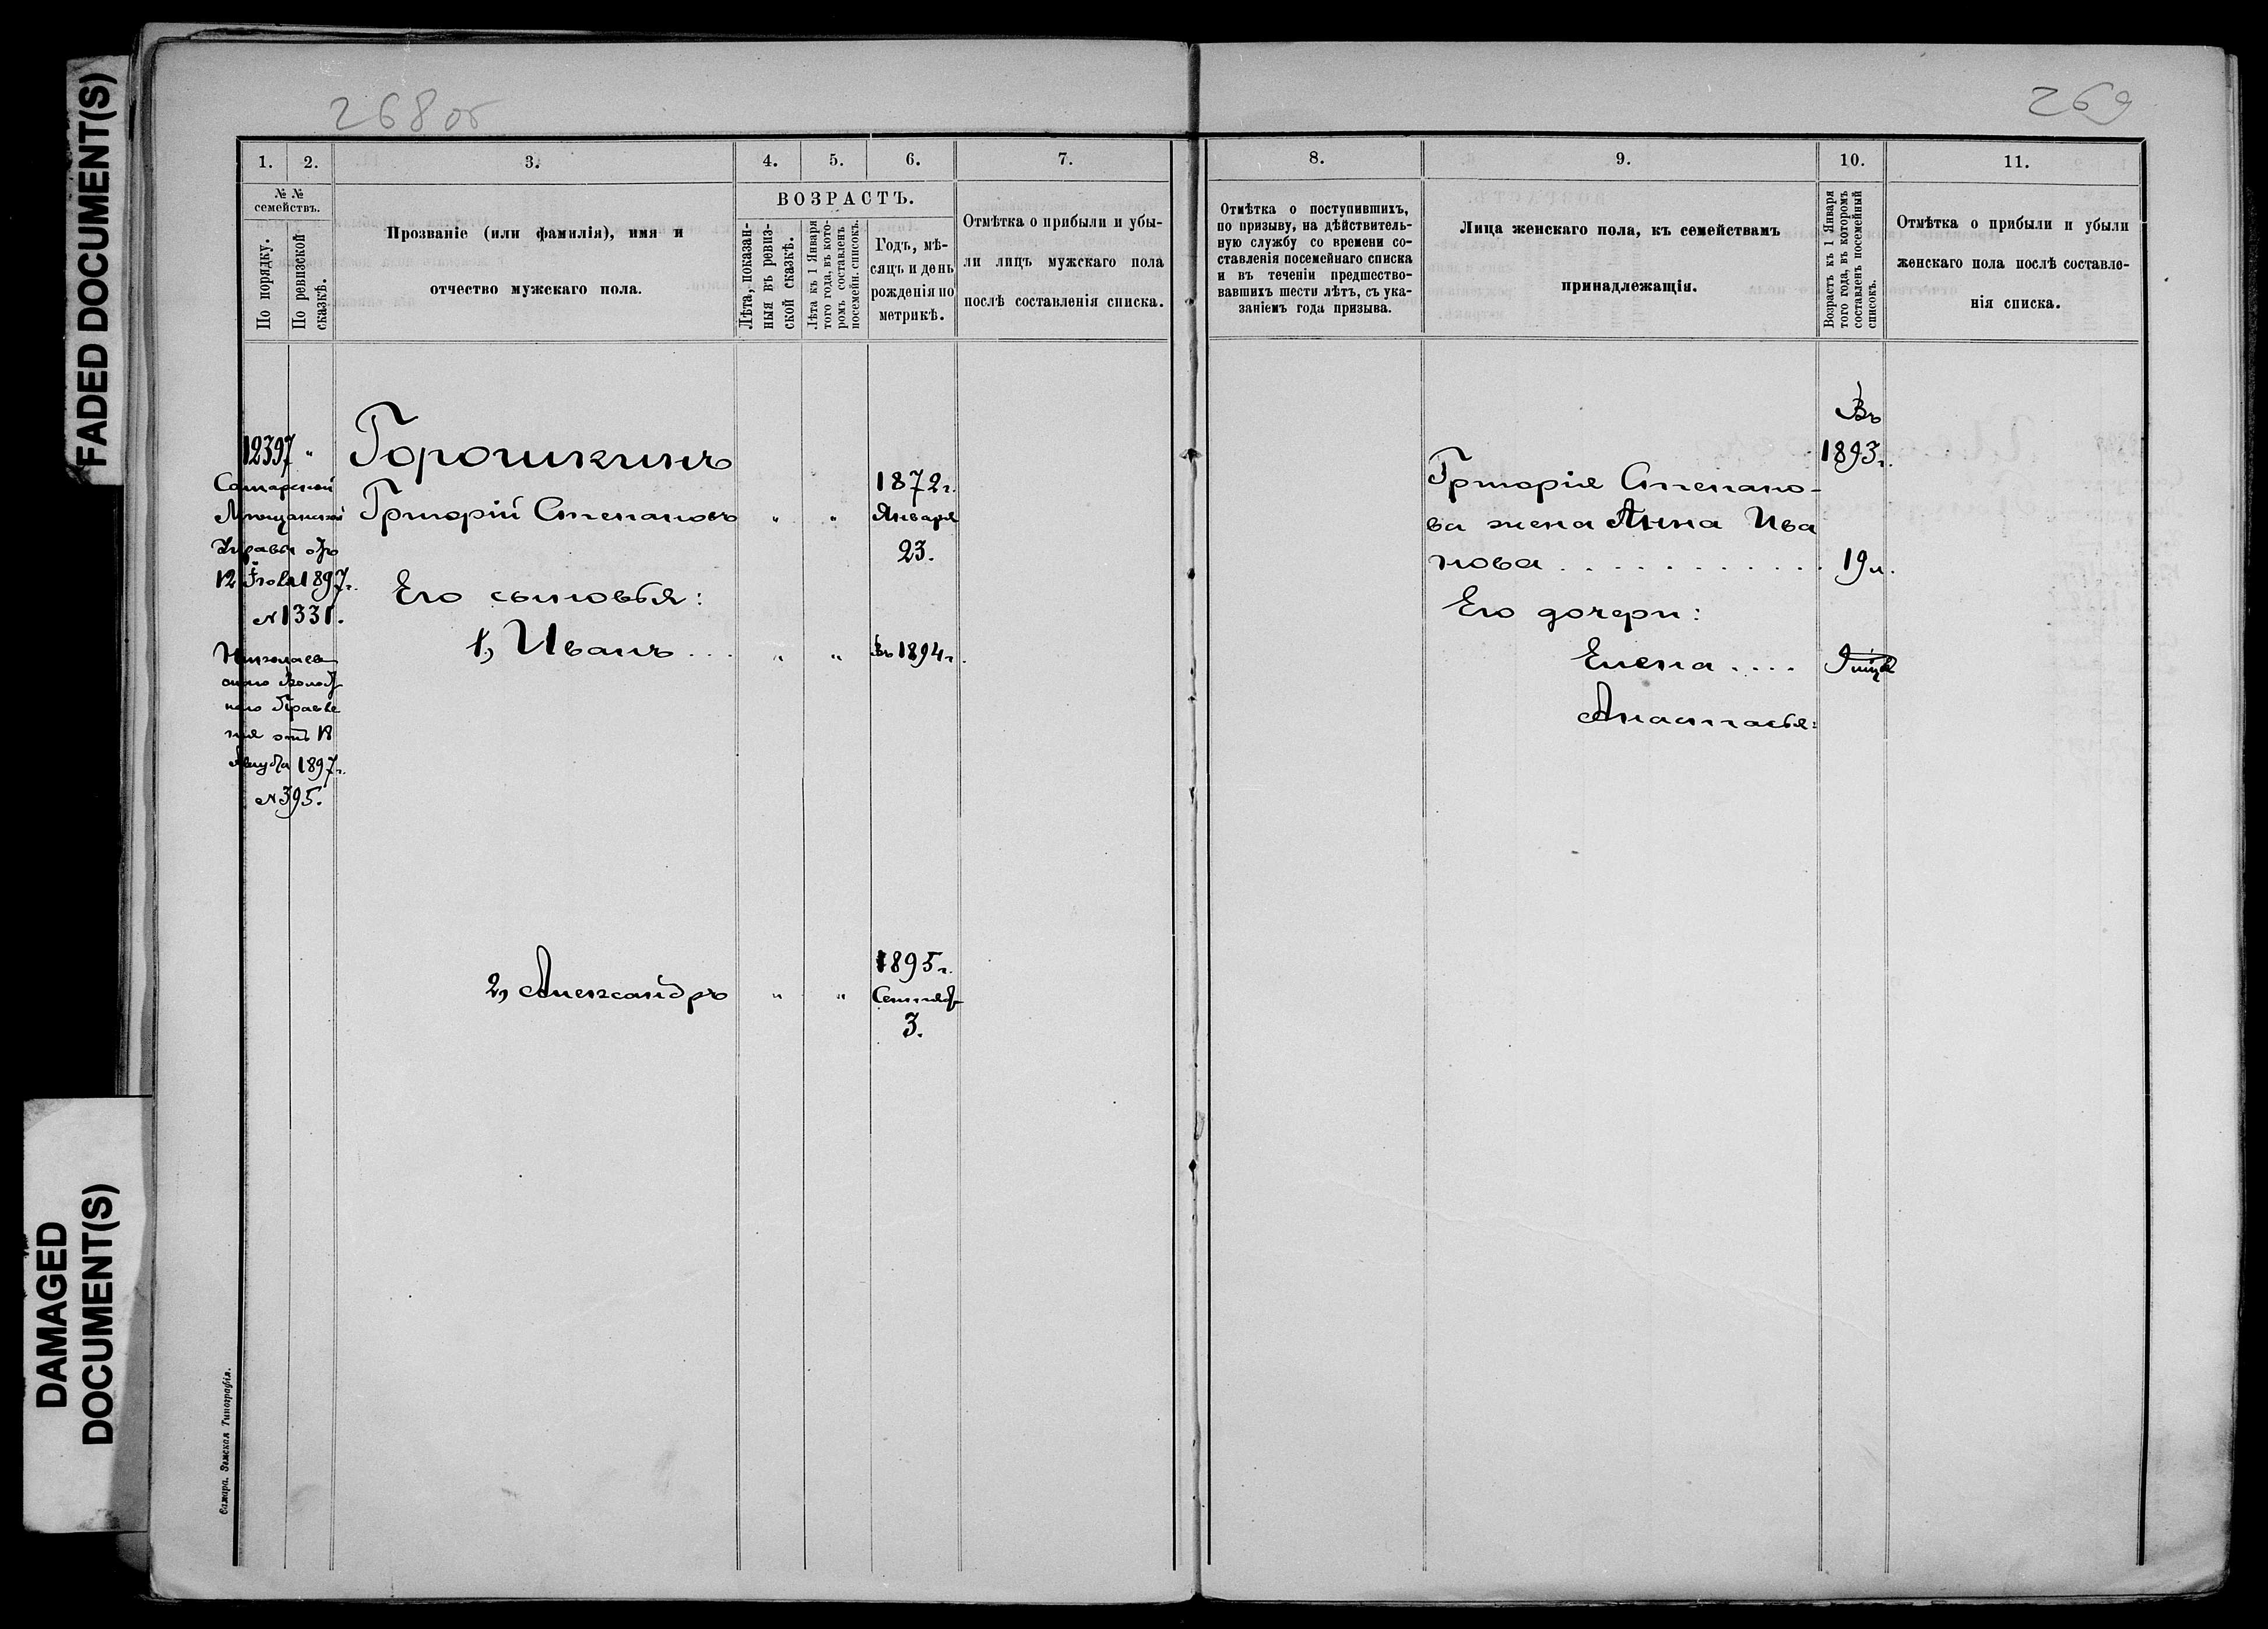 FADED DOCUMENT(S)
DAMAGED
DOCUMENT(S)
268 об
1.
2.
3.
4.
5.
6.
7.
№ №
семействъ.
По порядку.
По ревизской
сказкѣ.
Прозваніе (или фамилія), имя и
отчество мужскаго пола.
ВОЗРАСТЪ.
Лѣта, показан-
ныя въ ревиз-
ской сказкѣ.
Лѣта къ 1 Января
того года, въ кото-
ромъ составленъ
посемейн. списокъ.
Годъ, мѣ-
сяцъ и день
рожденія по
метрикѣ.
Отмѣтка о прибыли и убы-
ли лицъ мужскаго пола
послѣ составленія списка.
12397 „
Самарской
Мѣщанской
Управы отъ
12 Іюля 1897 г.
№ 1331.
Николаев
скаго Волост
наго Правле
нія отъ 18
Августа 1897 г.
№ 395.
Горошкинъ
Григорій Степановъ „ „
1872 г.
Января
23.
Его сыновья:
1, Иванъ . . . „ „ Въ 1894 г.
2, Александръ „ „
1895 г.
Сентяб
3.
Самара. Земская Типографія.
269
8.
9.
10.
11.
Отмѣтка о поступившихъ,
по призыву, на дѣйствитель-
ную службу со времени со-
ставленія посемейнаго списка
и въ теченіи предшество-
вавшихъ шести лѣтъ, съ ука-
заніемъ года призыва.
Лица женскаго пола, къ семействамъ
принадлежащія.
Возрастъ къ 1 Января
того года, въ которомъ
составленъ посемейный
списокъ.
Отмѣтка о прибыли и убыли
женскаго пола послѣ составле-
нія списка.
Въ
1893 г.
Григорія Степано-
ва жена Анна Ива
нова . . . . . . . . . . . . 19 л.
Его дочери:
Елена . . . .
Анастасья: